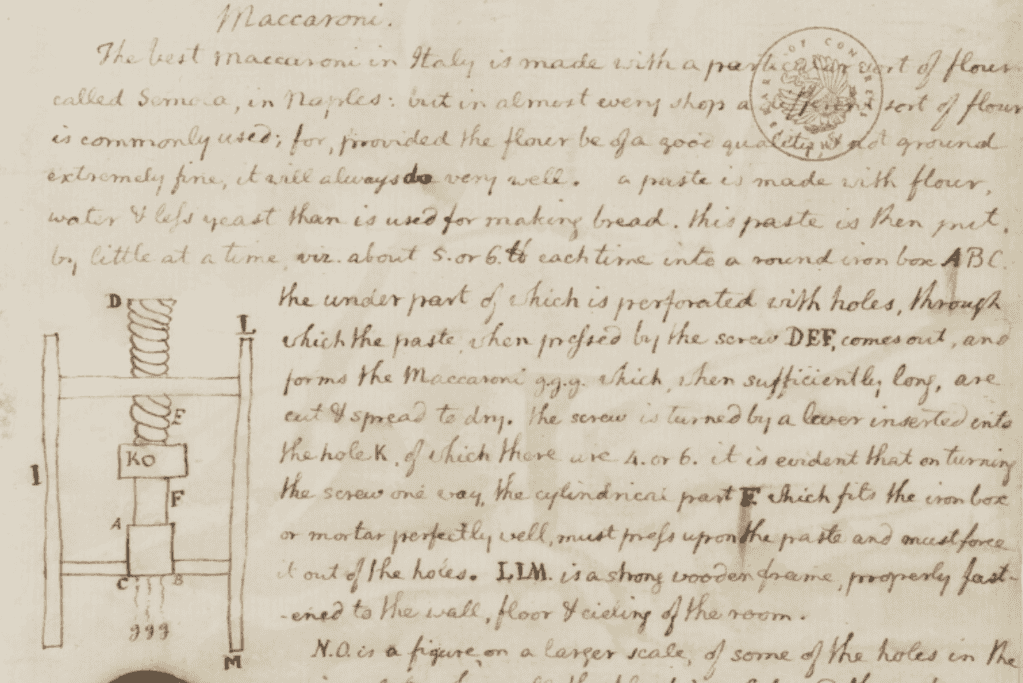 Maccaroni.
The best maccaroni in Italy is made with a particular sort of flour
called Semola, in Naples: but in almost every shop a different sort of flour
is commonly used; for, provided the flour be of a good quality, & not ground
extremely fine, it will always do very well. a paste is made with flour,
water & less yeast than is used for making bread. this paste is then put,
by little at a time, viz. about 5. or 6. ℔ each time into a round iron box ABC.
the under part of which is perforated with holes, through
which the paste, when pressed by the screw DEF, comes out, and
forms the Maccaroni g.g.g. which, when sufficiently long, are
cut & spread to dry. the screw is turned by a lever inserted into
the hole K. of which there are 4. or 6. it is evident that on turning
the screw one way, the cylindrical part F. which fits the iron box
or mortar perfectly well, must press upon the paste and must force
it out of the holes. LLM. is a strong wooden frame, properly fast-
-ened to the wall, floor & cieling of the room.
N.O. is a figure, on a larger scale, of some of the holes in the
D
L
E
KO
I
F
A
C
B
ggg
M